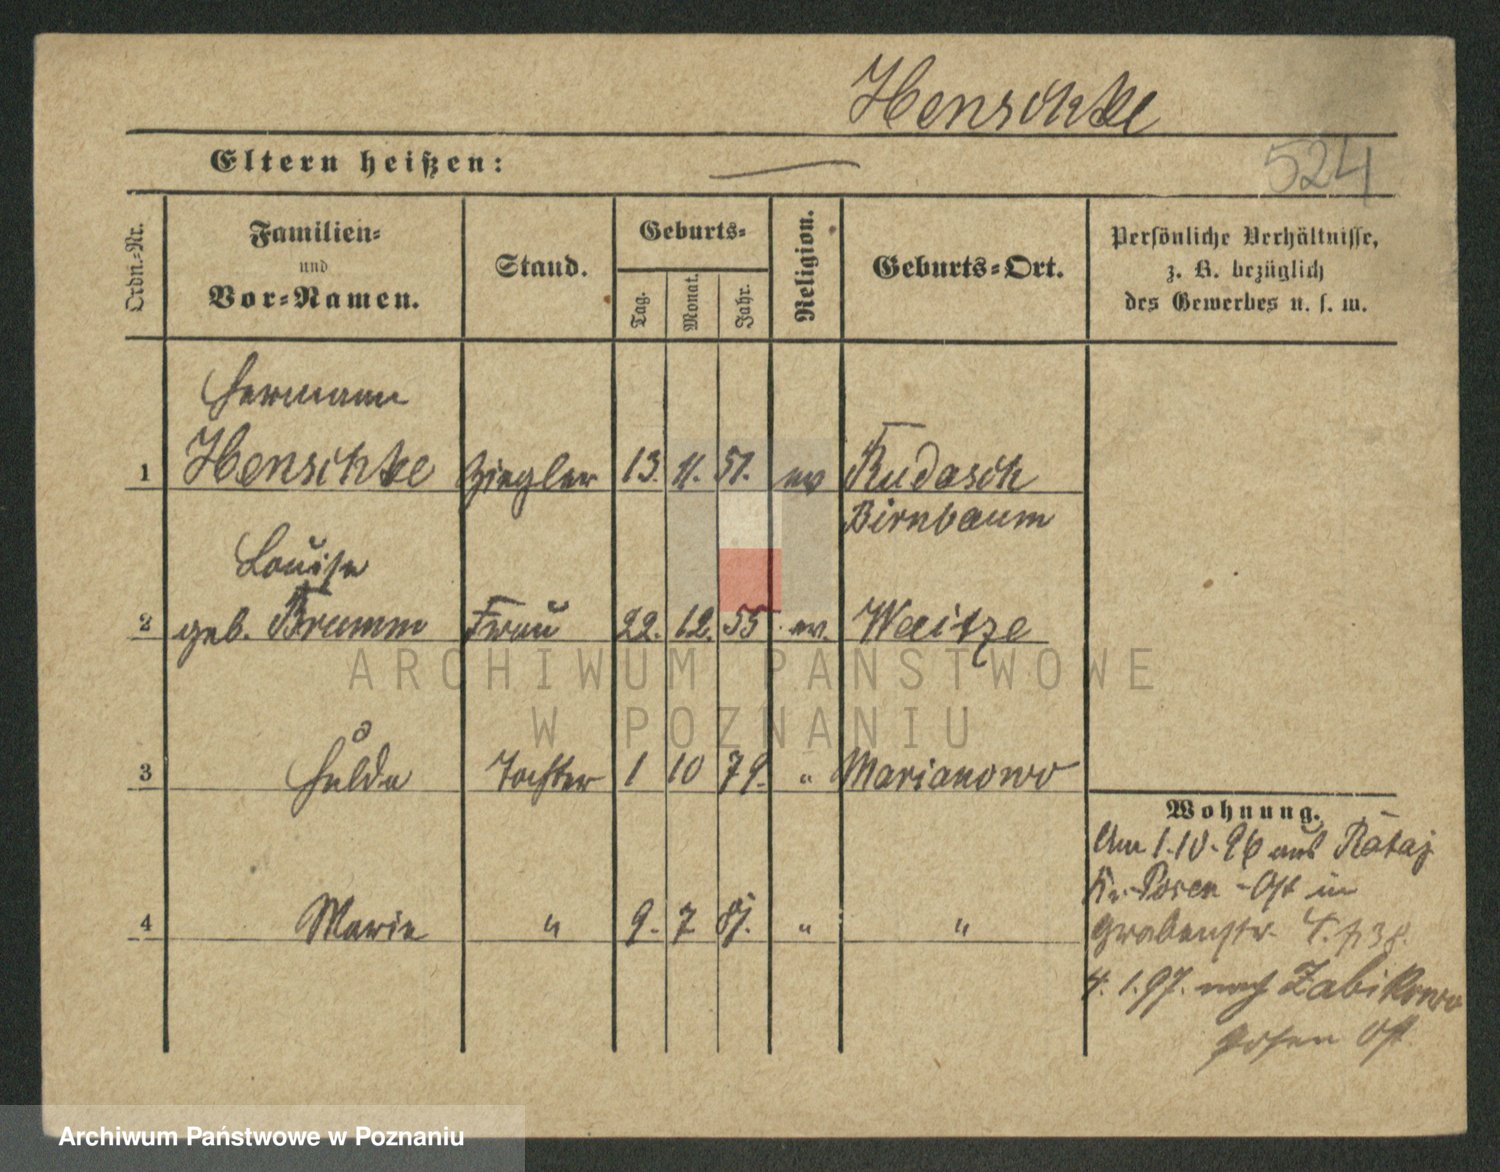 Henschke
Eltern heißen: —
524
Ordn.-Nr.
Familien-
und
Vor-Namen.
Stand.
Geburts-
Tag.
Monat.
Jahr.
Religion.
Geburts-Ort.
Persönliche Verhältnisse,
z. B. bezüglich
des Gewerbes u. s. w.
Hermann
1 Henschke Ziegler 13. 11. 51. ev Rudasch
Birnbaum
Louise
2 geb. Bramm Frau 22. 12. 55 ev. Waitze
3 Hulda Tochter 1 10 79. " Marianowo
Wohnung.
Am 1.10.96 aus Rataj
Kr. Posen-Ost in
4 Marie " 9. 7 81. " "
Grabenstr. 4.
4. 1. 97. nach Zabikowo
Posen Ost
ARCHIWUM PAŃSTWOWE
W POZNANIU
Archiwum Państwowe w Poznaniu